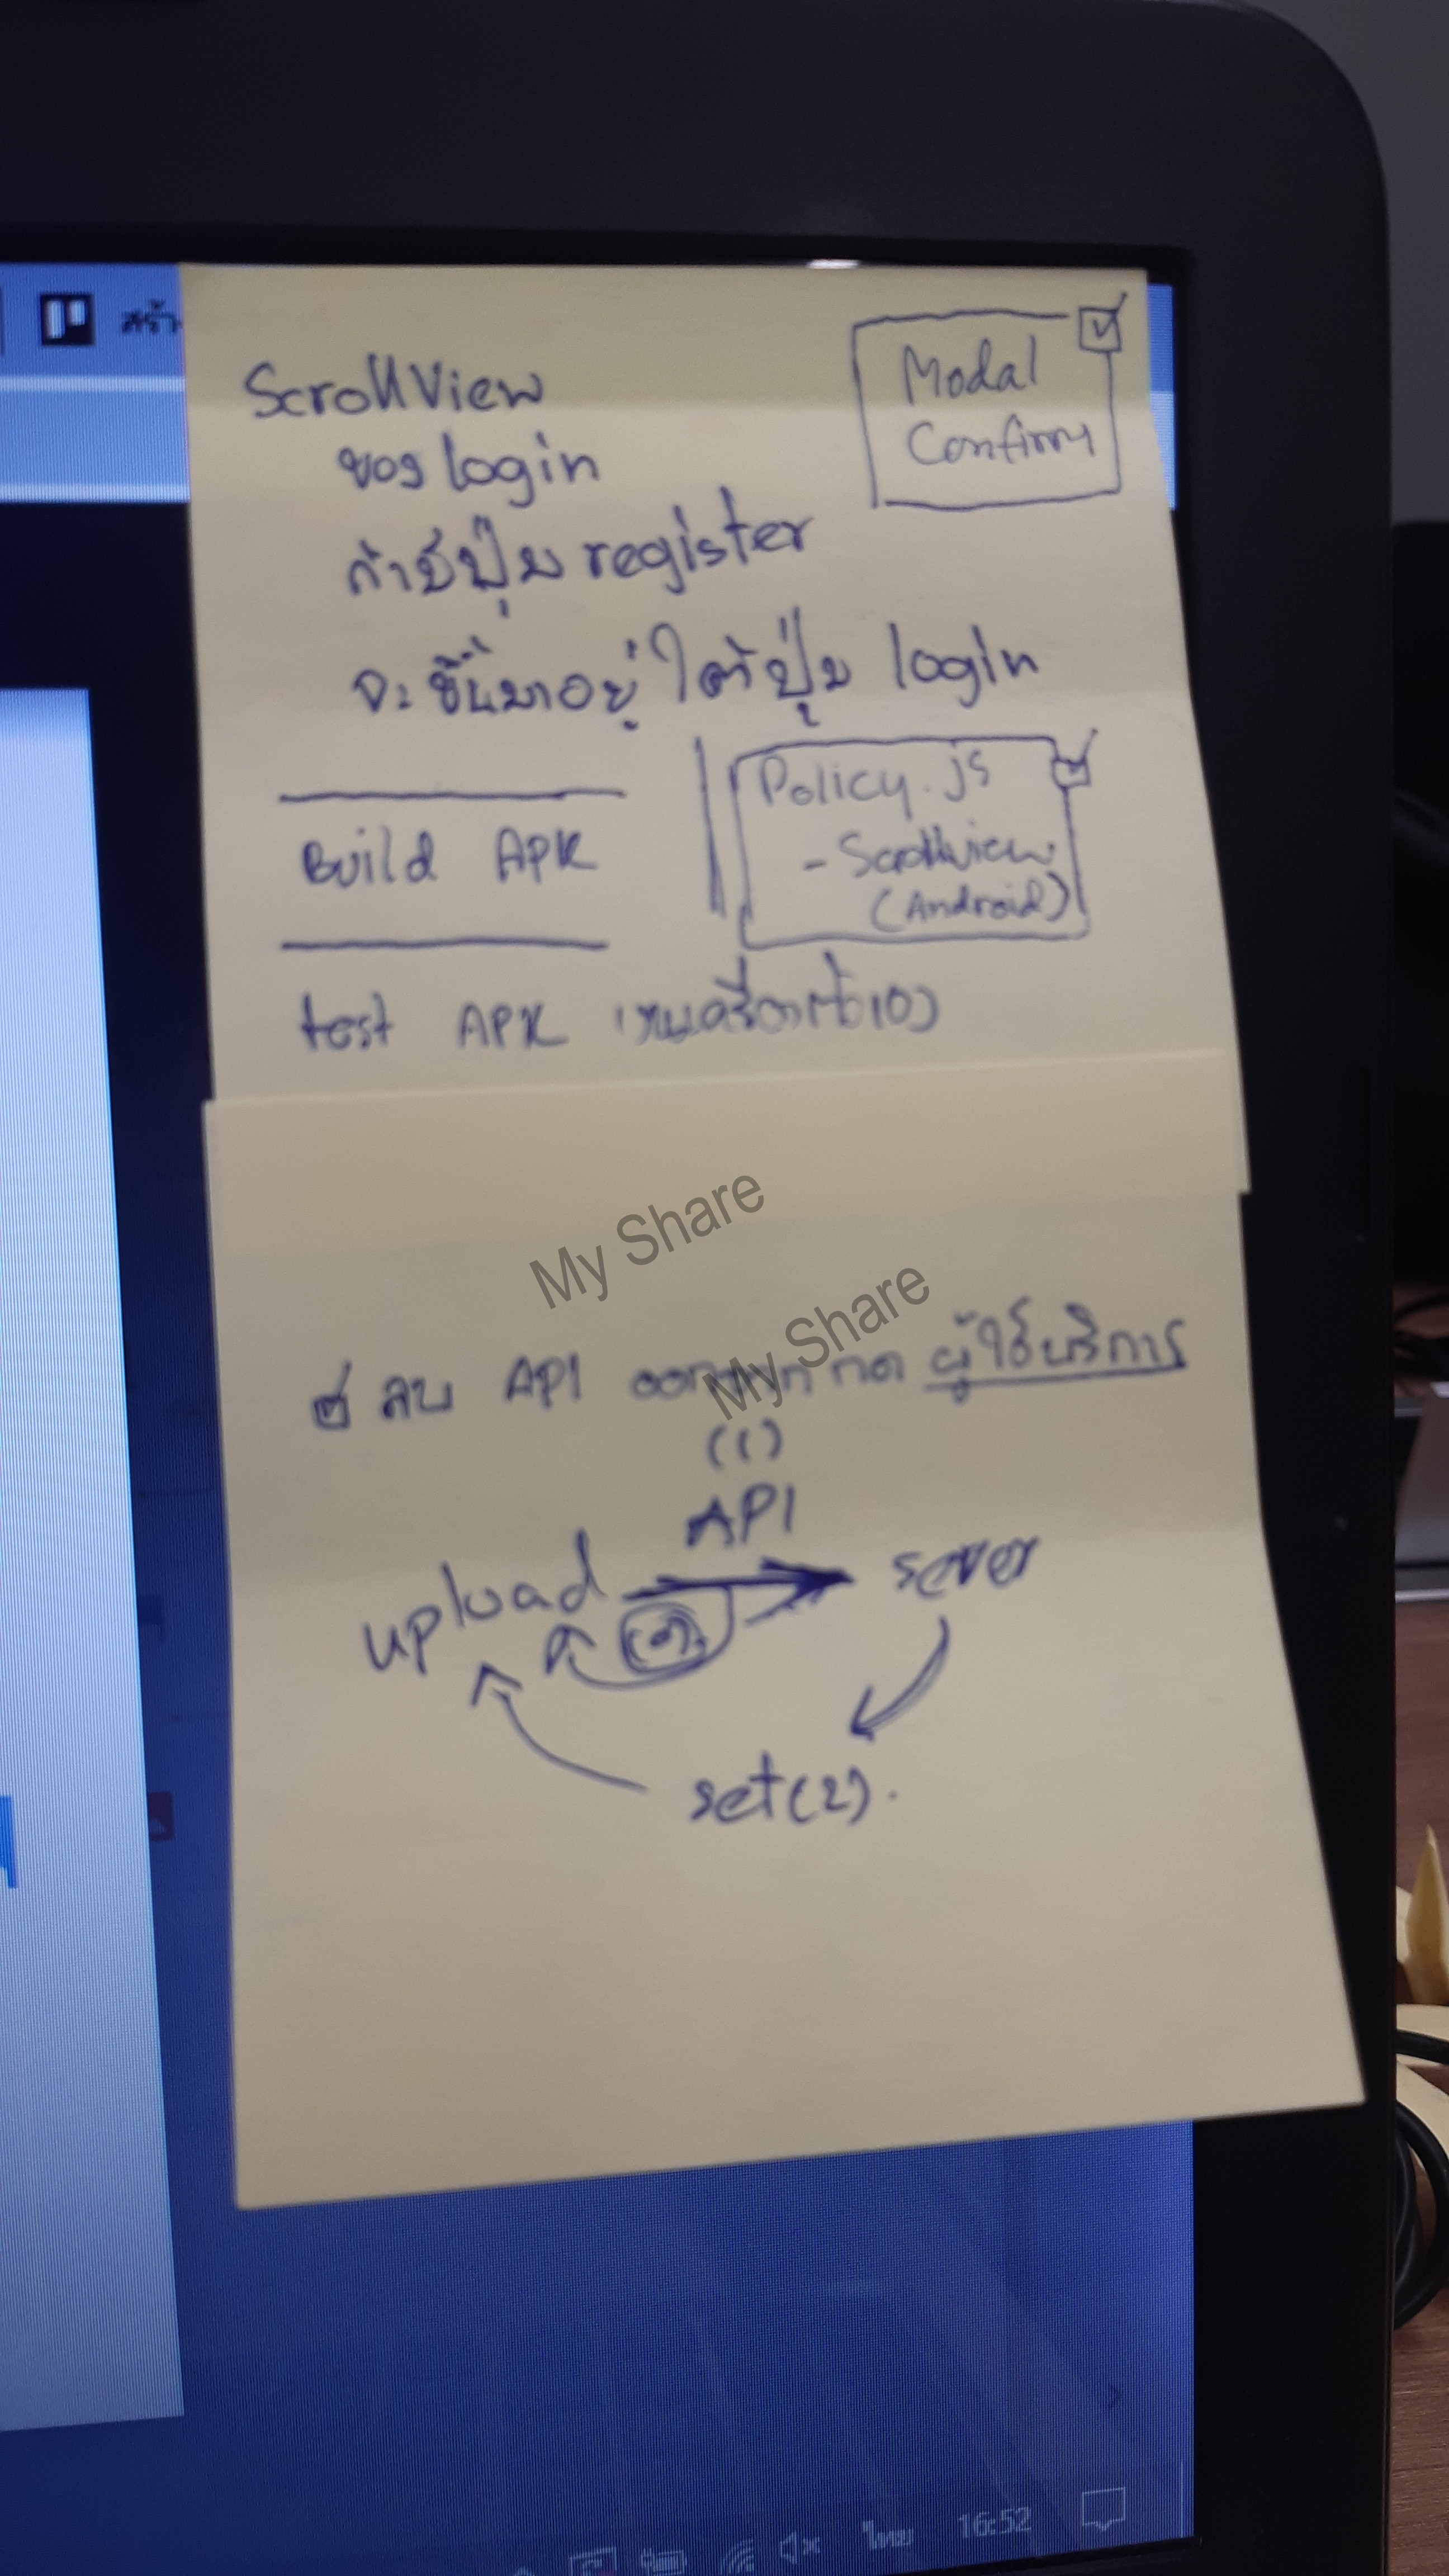 สร้า
ScrollView
ของ login
ถ้ามีปุ่ม register
จะขึ้นมาอยู่ใต้ปุ่ม login
Modal
Confirm
Build APK
Policy.js
- Scrollview
(Android)
test APK
My Share
My Share
ลบ API ออกจาก กด ผู้ใช้บริการ
(1)
API
upload
server
set(2).
ไทย 16:52